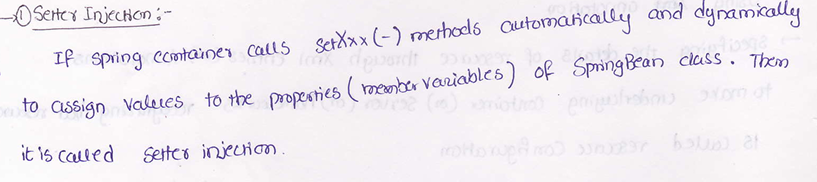 →① Setter Injection :-
If spring container calls setXxx (-) methods automatically and dynamically
to assign values to the properties (member variables) of SpringBean class. Then
it is called setter injection.